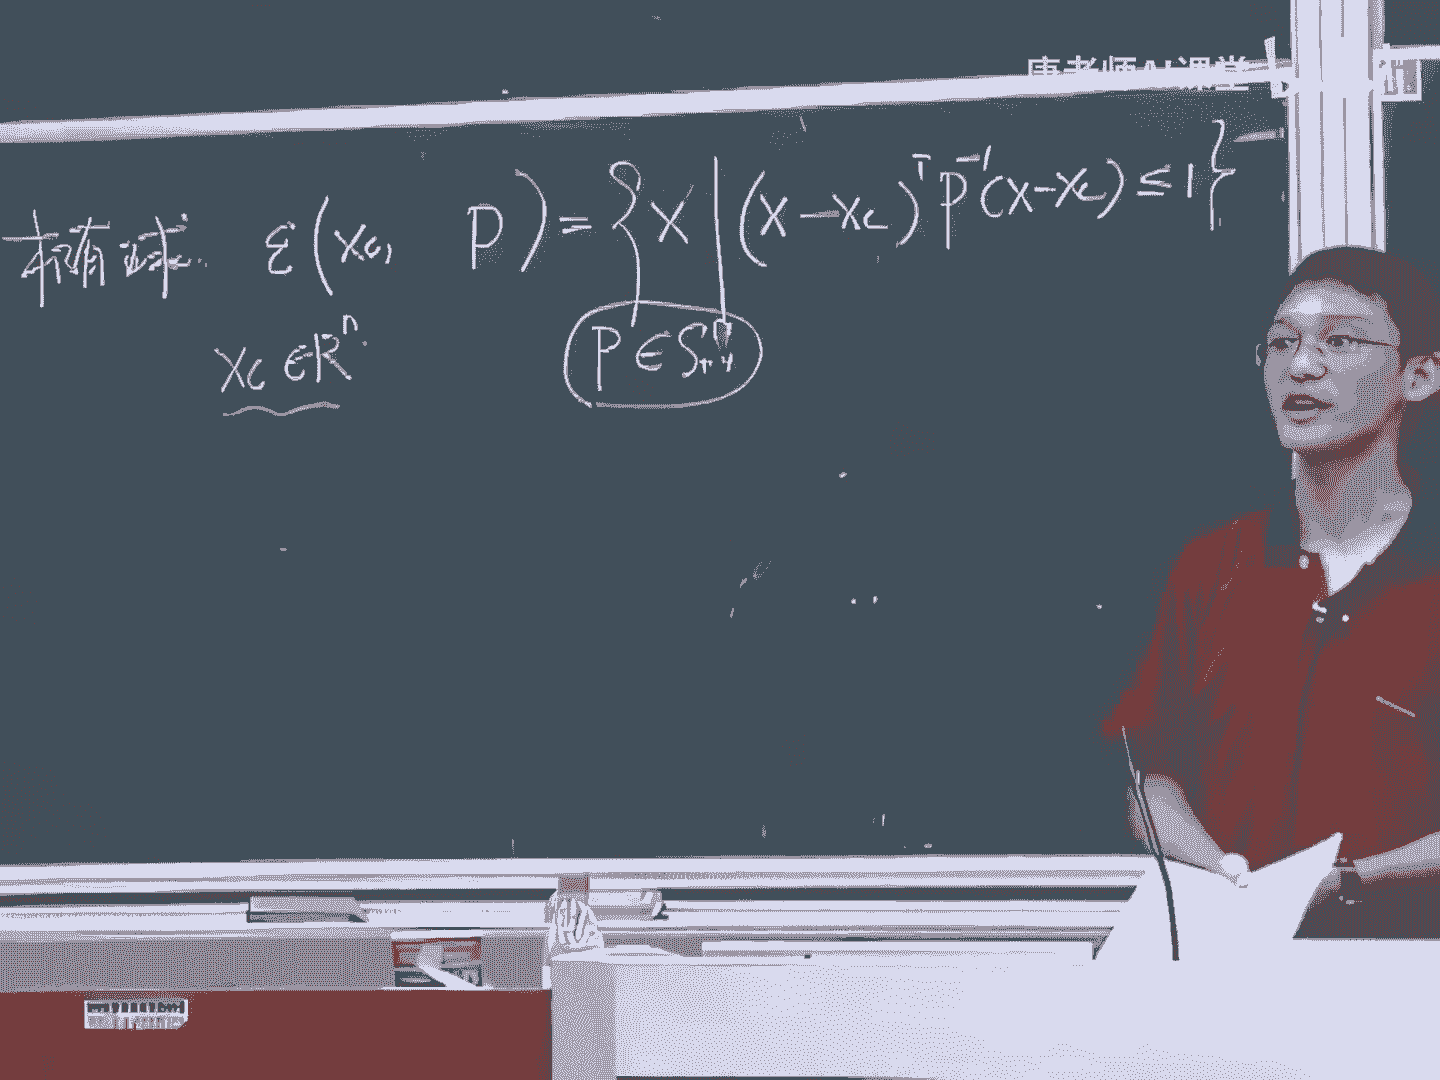 唐老师AI课堂
椭球. ε(xc, P) = {x | (x-xc)ᵀP⁻¹(x-xc) ≤ 1}
xc ∈ Rⁿ. P ∈ S₊₊ⁿ